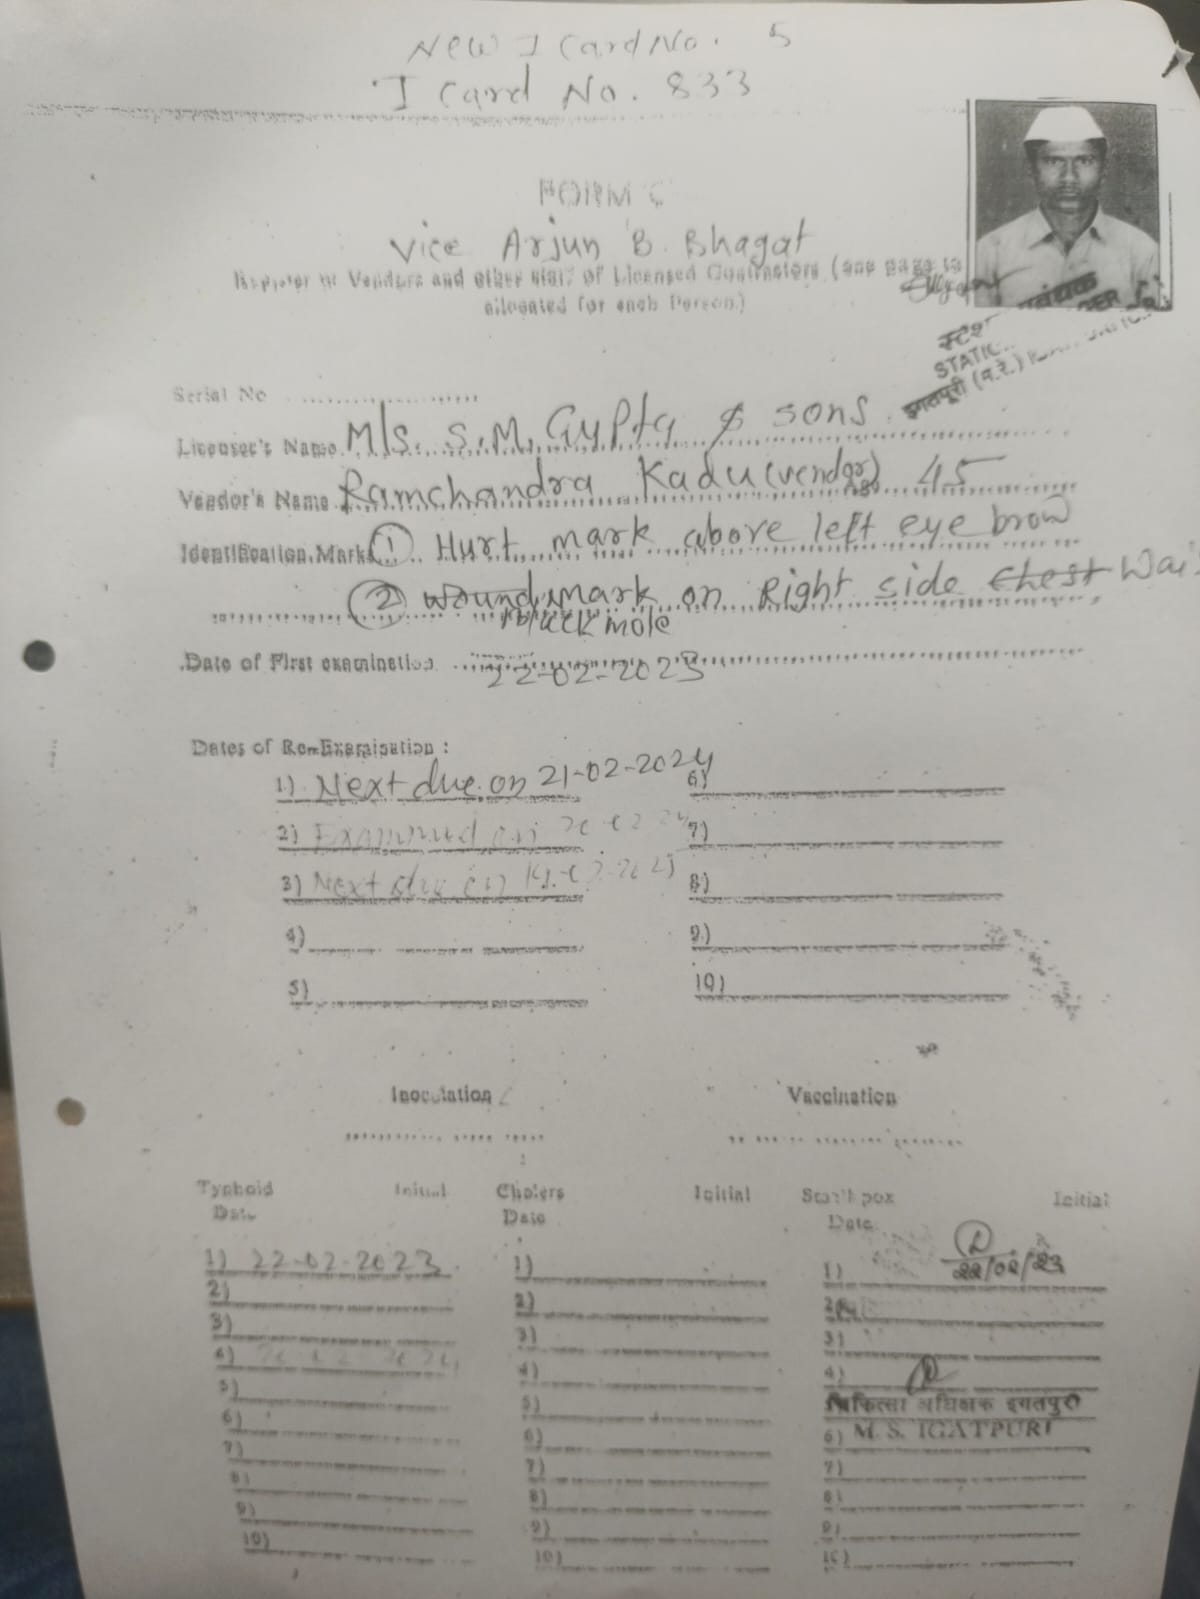 New I Card No. 5
I Card No. 833
FORM C
Vice Arjun B. Bhagat
Register of Vendors and other staff of Licensed Contractors (one page to
allocated for each Person)
स्टेशन प्रबंधक
STATION
इगतपुरी (म.रे.)
Serial No
Licensee's Name M/s. S.M. Gupta & sons
Vendor's Name Ramchandra Kadu (vendor) 45
Identification Marks (1) Hurt mark above left eye brow
(2) wound mark on Right side chest
black mole
Date of First examination 22-02-2023
Dates of Re-Examination :
1) Next due on 21-02-2024 6)
2) Examined on 7)
3) Next due on 8)
4) 9)
5) 10)
Inoculation Vaccination
Typhoid Initial Cholera Initial Small pox Initial
Date Date Date
1) 22-02-2023 1) 1) 22/02/23
2) 2) 2)
3) 3) 3)
4) 4) 4)
5) 5) चिकित्सा अधिक्षक इगतपुरी
6) 6) 6) M. S. IGATPURI
7) 7) 7)
8) 8) 8)
9) 9) 9)
10) 10) 10)